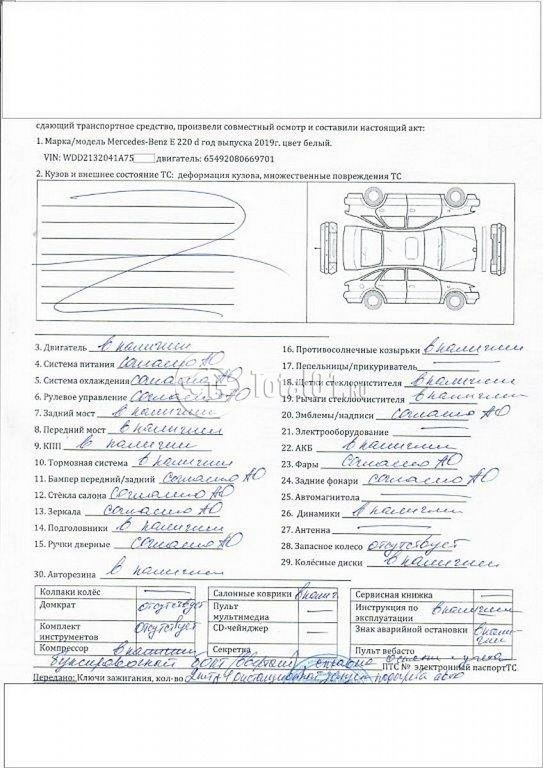 сдающий транспортное средство, произвели совместный осмотр и составили настоящий акт:
1. Марка/модель Mercedes-Benz E 220 d год выпуска 2019г. цвет белый.
VIN: WDD2132041A75 двигатель: 65492080669701
2. Кузов и внешнее состояние ТС: деформация кузова, множественные повреждения ТС
3. Двигатель в наличии
4. Система питания согласно АО
5. Система охлаждения согласно АО
6. Рулевое управление согласно АО
7. Задний мост в наличии
8. Передний мост в наличии
9. КПП в наличии
10. Тормозная система в наличии
11. Бампер передний/задний согласно АО
12. Стёкла салона согласно АО
13. Зеркала согласно АО
14. Подголовники в наличии
15. Ручки дверные согласно АО
16. Противосолнечные козырьки в наличии
17. Пепельницы/прикуриватель
18. Щетки стеклоочистителя в наличии
19. Рычаги стеклоочистителя в наличии
20. Эмблемы/надписи согласно АО
21. Электрооборудование
22. АКБ в наличии
23. Фары согласно АО
24. Задние фонари согласно АО
25. Автомагнитола
26. Динамики в наличии
27. Антенна
28. Запасное колесо отсутствует
29. Колёсные диски в наличии
30. Авторезина в наличии
Колпаки колёс Салонные коврики в налич Сервисная книжка
Домкрат отсутствует Пульт мультимедиа Инструкция по эксплуатации в наличии
Комплект инструментов отсутствует CD-чейнджер Знак аварийной остановки в наличии
Компрессор в наличии Секретка Пульт вебасто
буксировочный болт
ПТС № электронный паспортТС
Передано: Ключи зажигания, кол-во
Total01.ru